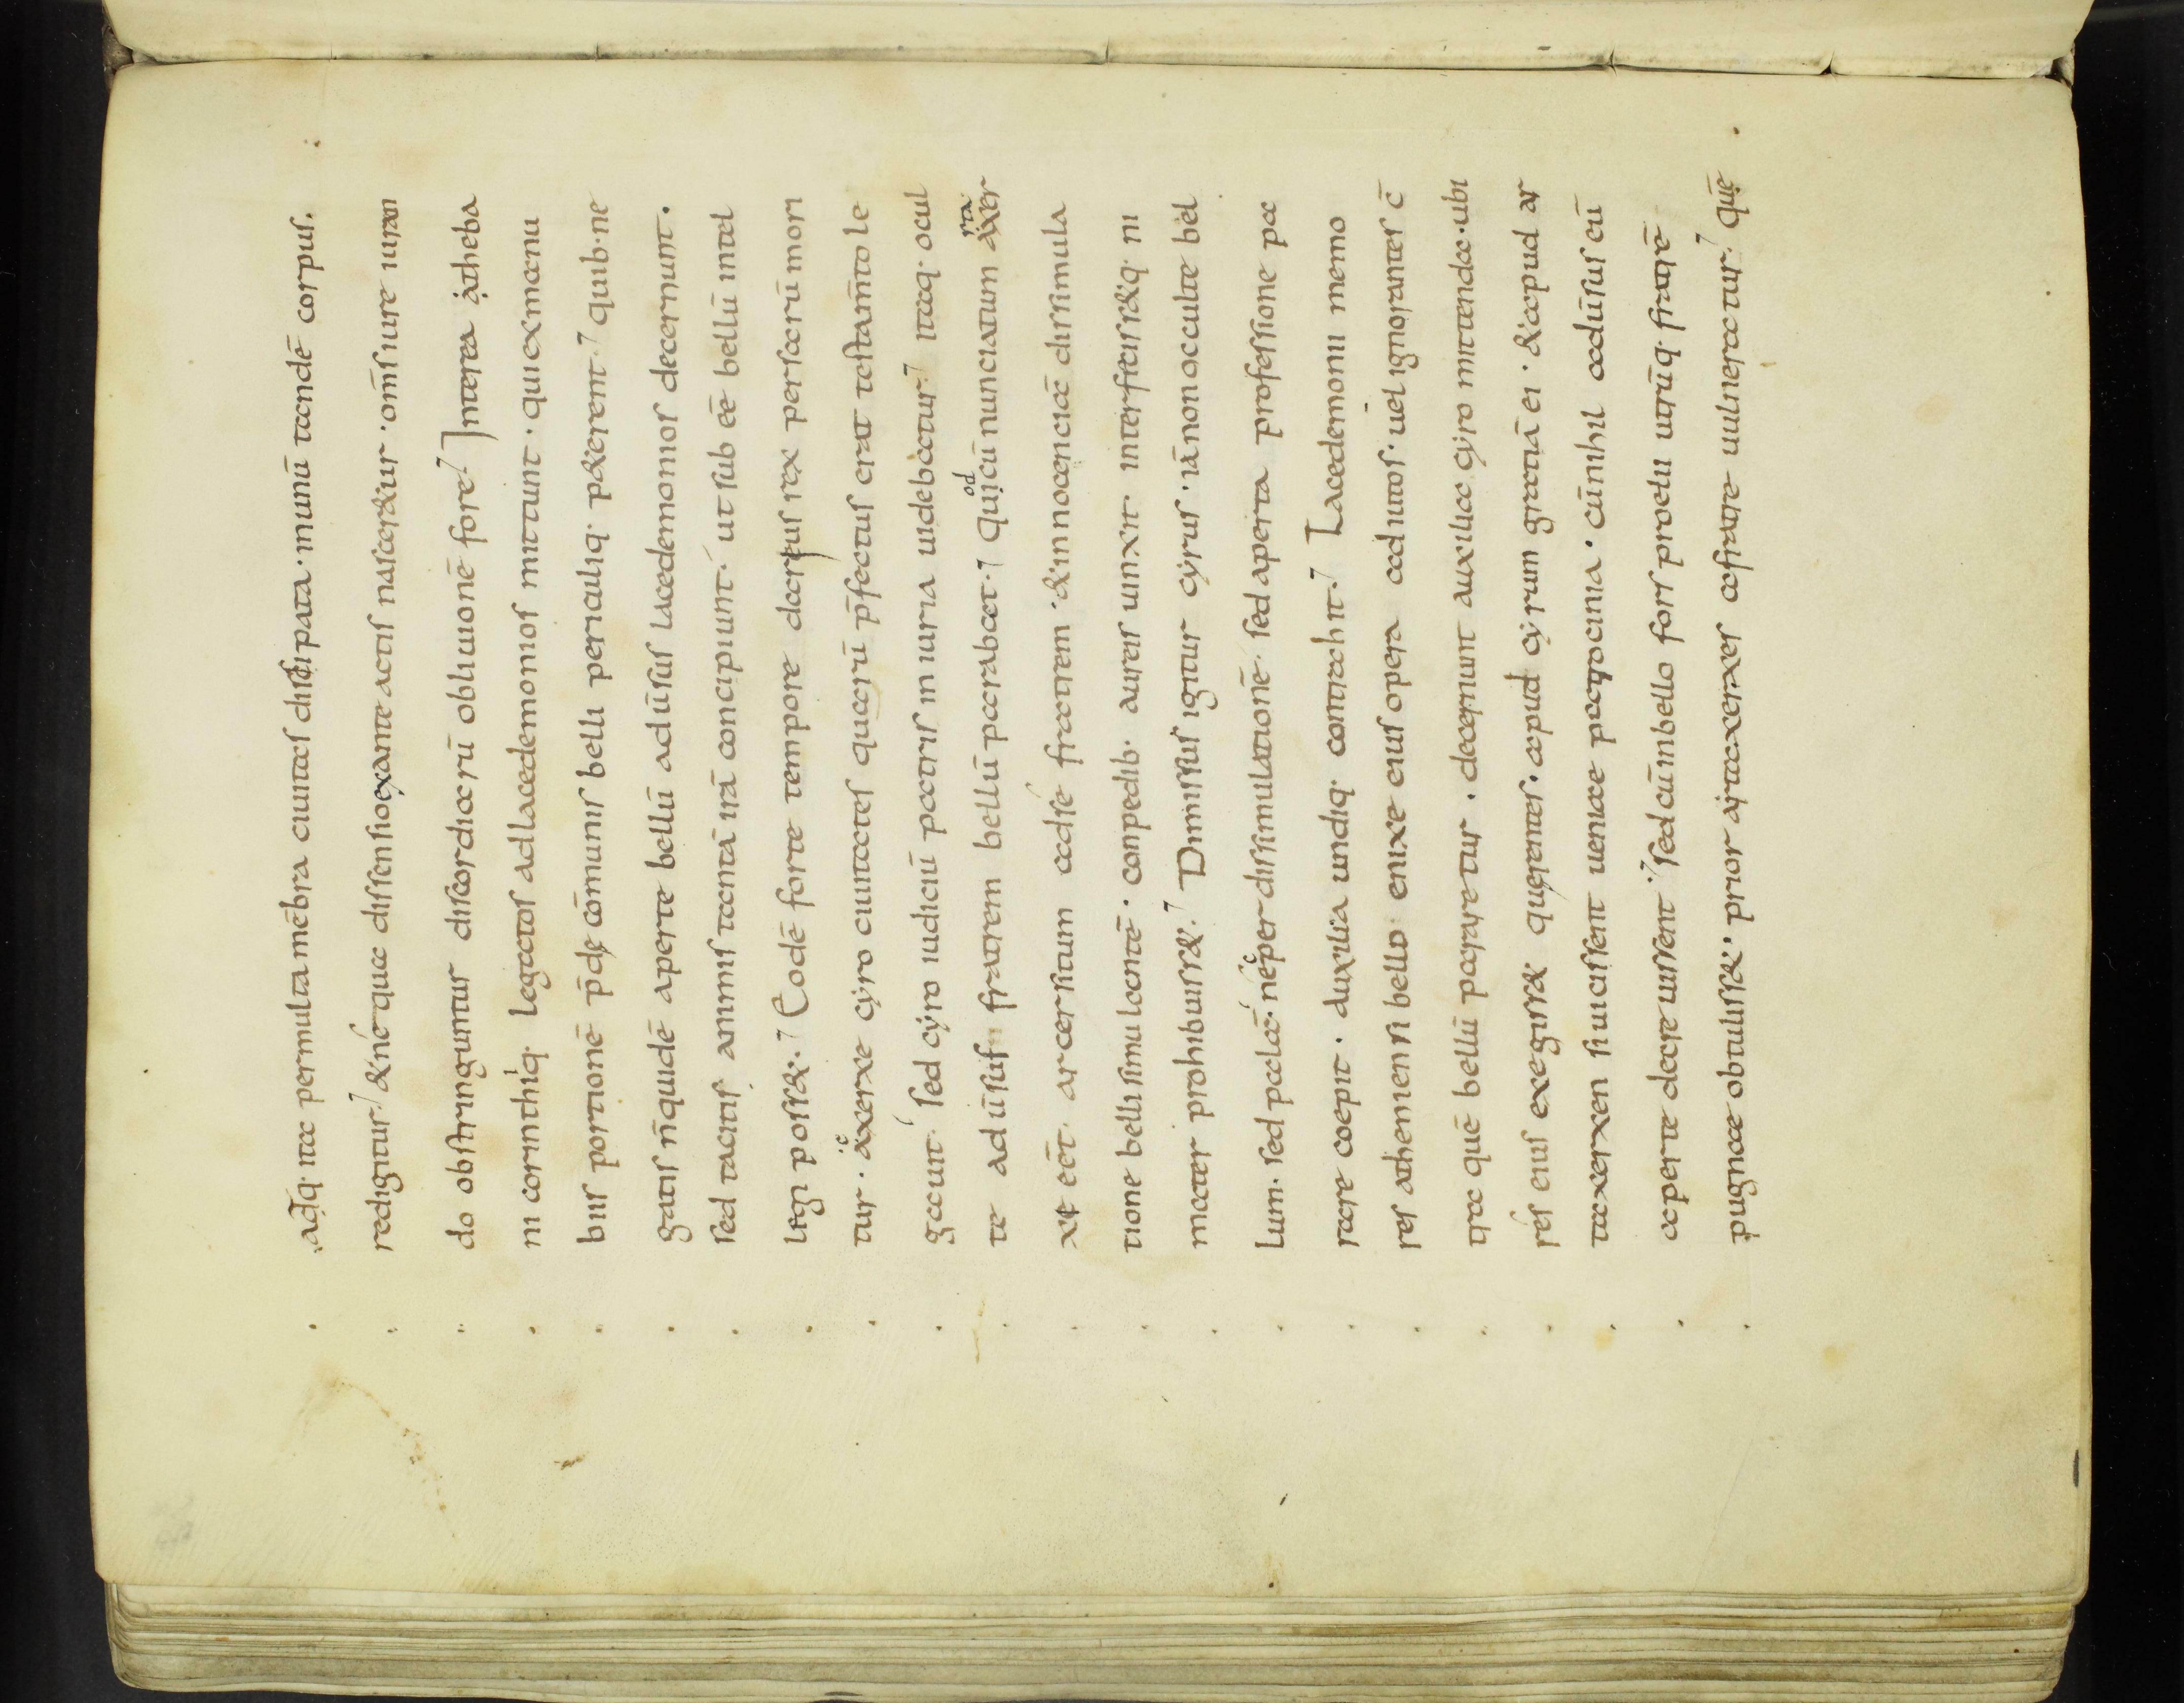 adq; ita permulta mēbra ciuitatis dissipata · munū tandē corpus ·
redigitur · &ne quae dissensio exante actis nascer&ur · om̄s iure iuran
do obstringuntur discordiarū obliuionē fore · Interea atheba
ni corinthiq; legatos adlacedemonios mittunt · qui exmanu
biis portionē p̄dę cōmunis belli periculiq; p&erent · quib; ne
gatis n̄quidē aperte bellū adū̄sus lacedemonios decernunt ·
sed tacitis animis tantā irā concipiunt · ut sub eē bellū intel
legi poss& · Eodē forte tempore dareus rex persarū mori
tur · axerxe cyro ciuitates quarū p̄fectus erat testam̄to le
gauit · sed cyro iudiciū patris iniuria uidebatur · itaq; occul
te adū̄sus fratrem bellū parabat · Quod cū nunciatum artaxer
xe eēt · arcersitum adse fratrem · &innocenciā dissimula
tione belli simulantē · conpedib; aureis uinxit interfeciss&q; ni
mater prohibuiss& · Dimissus igitur cyrus · iā non occulte bel
lum · sed palā · nec per dissimulationē · sed aperta professione pa
rare coepit · auxilia undiq; contrahit · Lacedemonii memo
res atheniensi bello enixe eius opera adiutos · uel ignorantes c̄
tra quē bellū pararetur · decernunt auxilia cyro mittenda · ubi
res eius exegiss& querentes · apud cyrum gratiā ei · &apud ar
taxerxen si uicissent ueniae patrocinia · cū nihil adū̄sus eū
aperte decre uissent · sed cū inbello fors proelii utrūq; fratrē
pugnae obtuliss& · prior artaxerxes a fratre uulneratur · quē